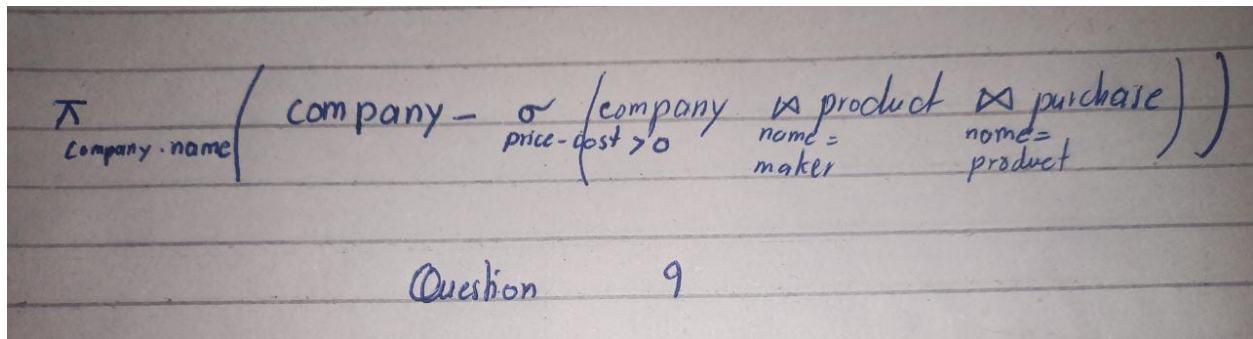 π company.name ( company - σ price-cost>0 (company ⋈ name=maker product ⋈ name=product purchase ) )
Question 9